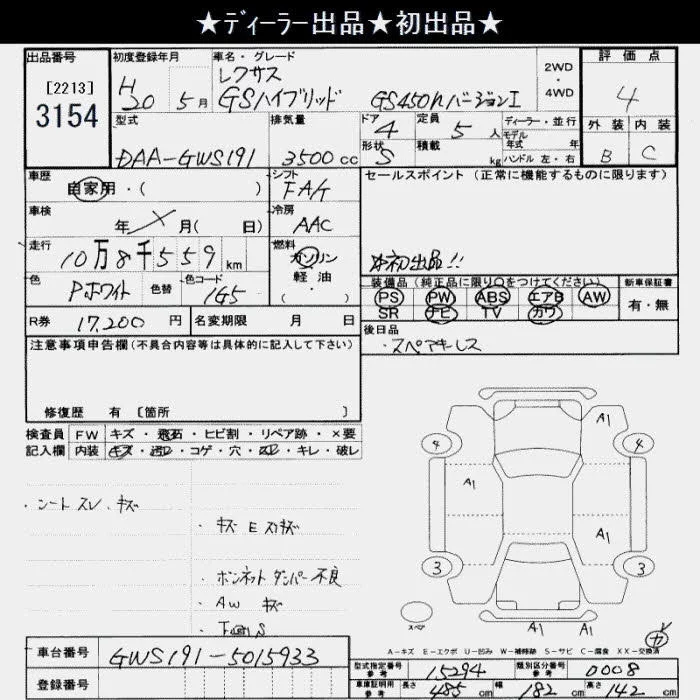 ★ディーラー出品★初出品★
出品番号
[2213]
3154
初度登録年月
H20 5月
車名・グレード
レクサス
GSハイブリッド GS450hバージョンI
2WD
・
4WD
評価点
4
外装 内装
B C
型式
DAA-GWS191
排気量
3500cc
ドア 4
形状 S
定員 5人
積載 kg
ディーラー・並行
モデル年式 年
ハンドル 左・右
車歴
自家用・( )
シフト
FAT
車検
年 月( 日)
冷房
AAC
走行
10万8千559km
燃料
ガソリン
軽油・
( )
色
Pホワイト
色替
色コード
1G5
R券 17,200円
名変期限 月 日
セールスポイント(正常に機能するものに限ります)
初出品!!
装備品(純正品に限り○をつけてください)
PS PW ABS エアB AW
SR ナビ TV カワ
新車保証書
有・無
後日品
・スペアキーレス
注意事項申告欄(不具合内容等は具体的に記入して下さい)
修復歴 有 [箇所 ]
検査員 FW キズ・飛石・ヒビ割・リペア跡・×要
記入欄 内装 キズ・汚レ・コゲ・穴・スレ・キレ・破レ
・シートスレ、キズ
・キズEスリキズ
・ボンネットダンパー不良
・AW キズ
A1
4 4
A1
A1
3 3
スペア
A1 A1
カ
A-キズ E-エクボ U-凹み W-補修跡 S-サビ C-腐食 XX-交換済
車台番号 GWS191-5015933
登録番号
型式指定番号 参考 15294
類別区分番号 参考 0008
車庫証明用 参考 長さ 485cm 幅 182cm 高さ 142cm